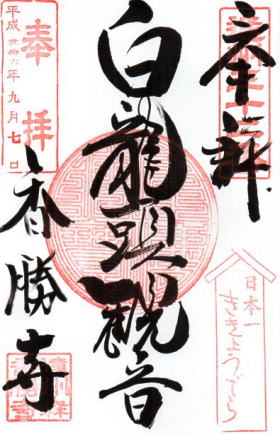 奉拝
日本一
ききょうでら
白龍頭観音
奉拝
平成弐拾六年九月七日
香勝寺